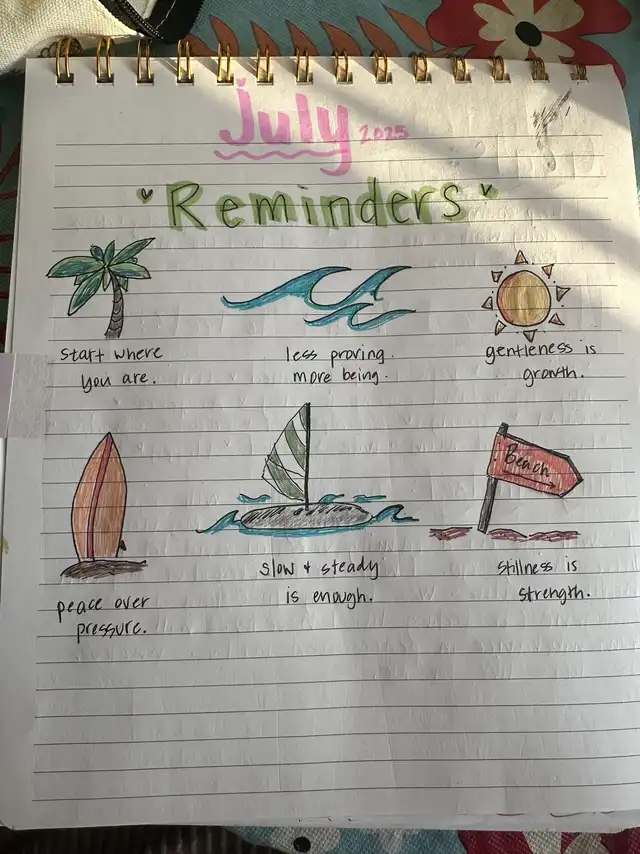 July 2025
Reminders
start where
you are.
less proving.
more being.
gentleness is
growth.
peace over
pressure.
slow + steady
is enough.
Beach
stillness is
strength.